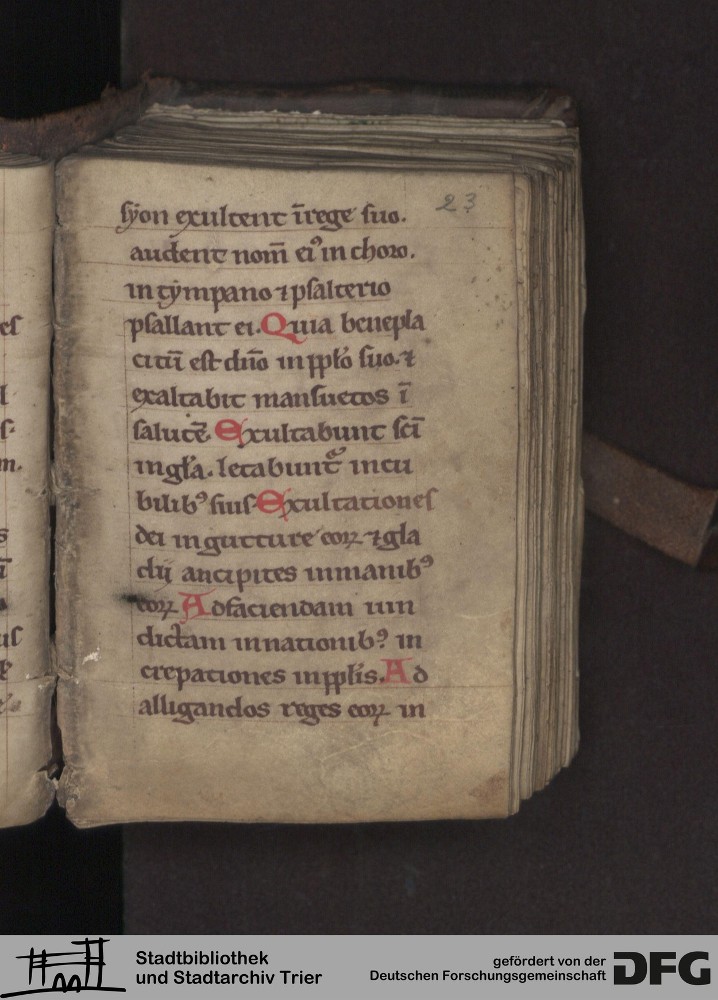 23
syon exultent īrege suo.
audent nom̄ ei⁹ in choro.
in tympano ⁊ psalterio
psallant ei. Quia benepla
citū est dño in pplo suo. ⁊
exaltabit mansuetos ī
salutē. Exultabunt sc̄i
in gła. letabunt᷑ in cu
bilib⁹ suis. Exultationes
dei in gutture eoꝝ ⁊ gla
dii ancipites in manib⁹
eoꝝ Ad faciendam uin
dictam in nationib⁹ in
crepationes in pplis. Ad
alligandos reges eoꝝ in
Stadtbibliothek
und Stadtarchiv Trier
gefördert von der
Deutschen Forschungsgemeinschaft
DFG